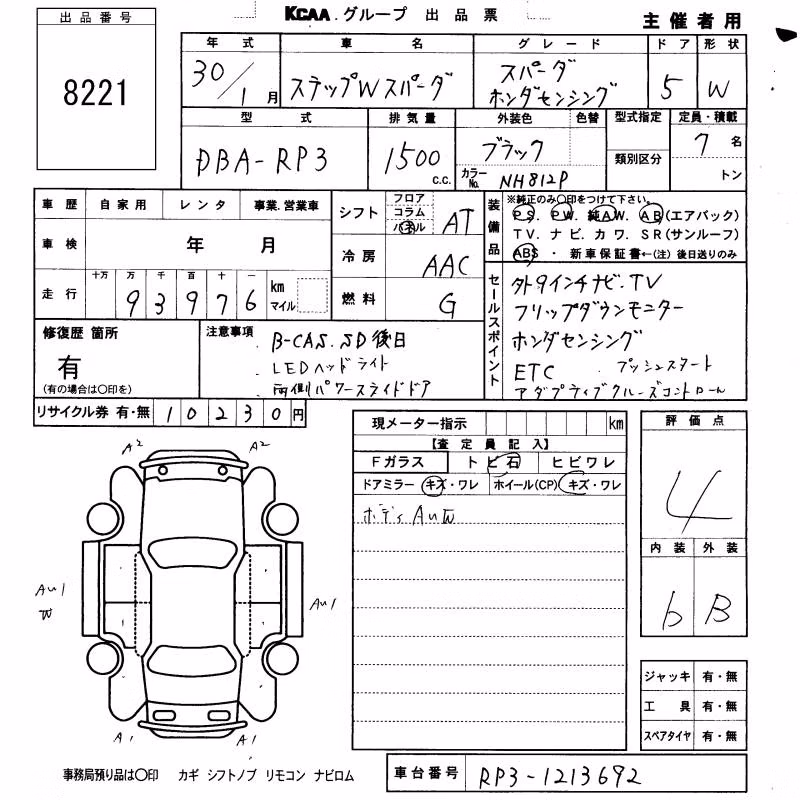 出品番号
8221
KCAA.グループ 出品票
主催者用
年式 車名 グレード ドア 形状
30/1月 ステップWスパーダ スパーダ ホンダセンシング 5 W
型式 排気量 外装色 色替 型式指定 定員・積載
DBA-RP3 1500 C.C. ブラック 類別区分 7名
カラーNo. NH812P トン
車歴 自家用 レンタ 事業.営業車
車検 年 月
走行 十万 万 千 百 十 一 km マイル
9 3 9 7 6
シフト フロア コラム パネル AT
冷房 AAC
燃料 G
装備品 ※純正のみ○印をつけて下さい。
PS. PW. 純AW. AB(エアバック)
TV.ナビ.カワ.SR(サンルーフ)
ABS ・ 新車保証書←(注)後日送りのみ
セールスポイント
外9インチナビ.TV
フリップダウンモニター
ホンダセンシング
ETC プッシュスタート
アダプティブクルーズコントロール
修復歴 箇所
有
(有の場合は○印を)
注意事項
B-CAS. SD後日
LEDヘッドライト
両側パワースライドドア
リサイクル券 有・無 10230円
現メーター指示 km
【査定員記入】
Fガラス トビ石 ヒビワレ
ドアミラー キズ・ワレ ホイール(CP) キズ・ワレ
ボディAUW
評価点
4
内装 外装
b B
A2 A2
AU1
W
AU1
A1 A1
ジャッキ 有・無
工具 有・無
スペアタイヤ 有・無
事務局預り品は○印 カギ シフトノブ リモコン ナビロム
車台番号 RP3-1213692